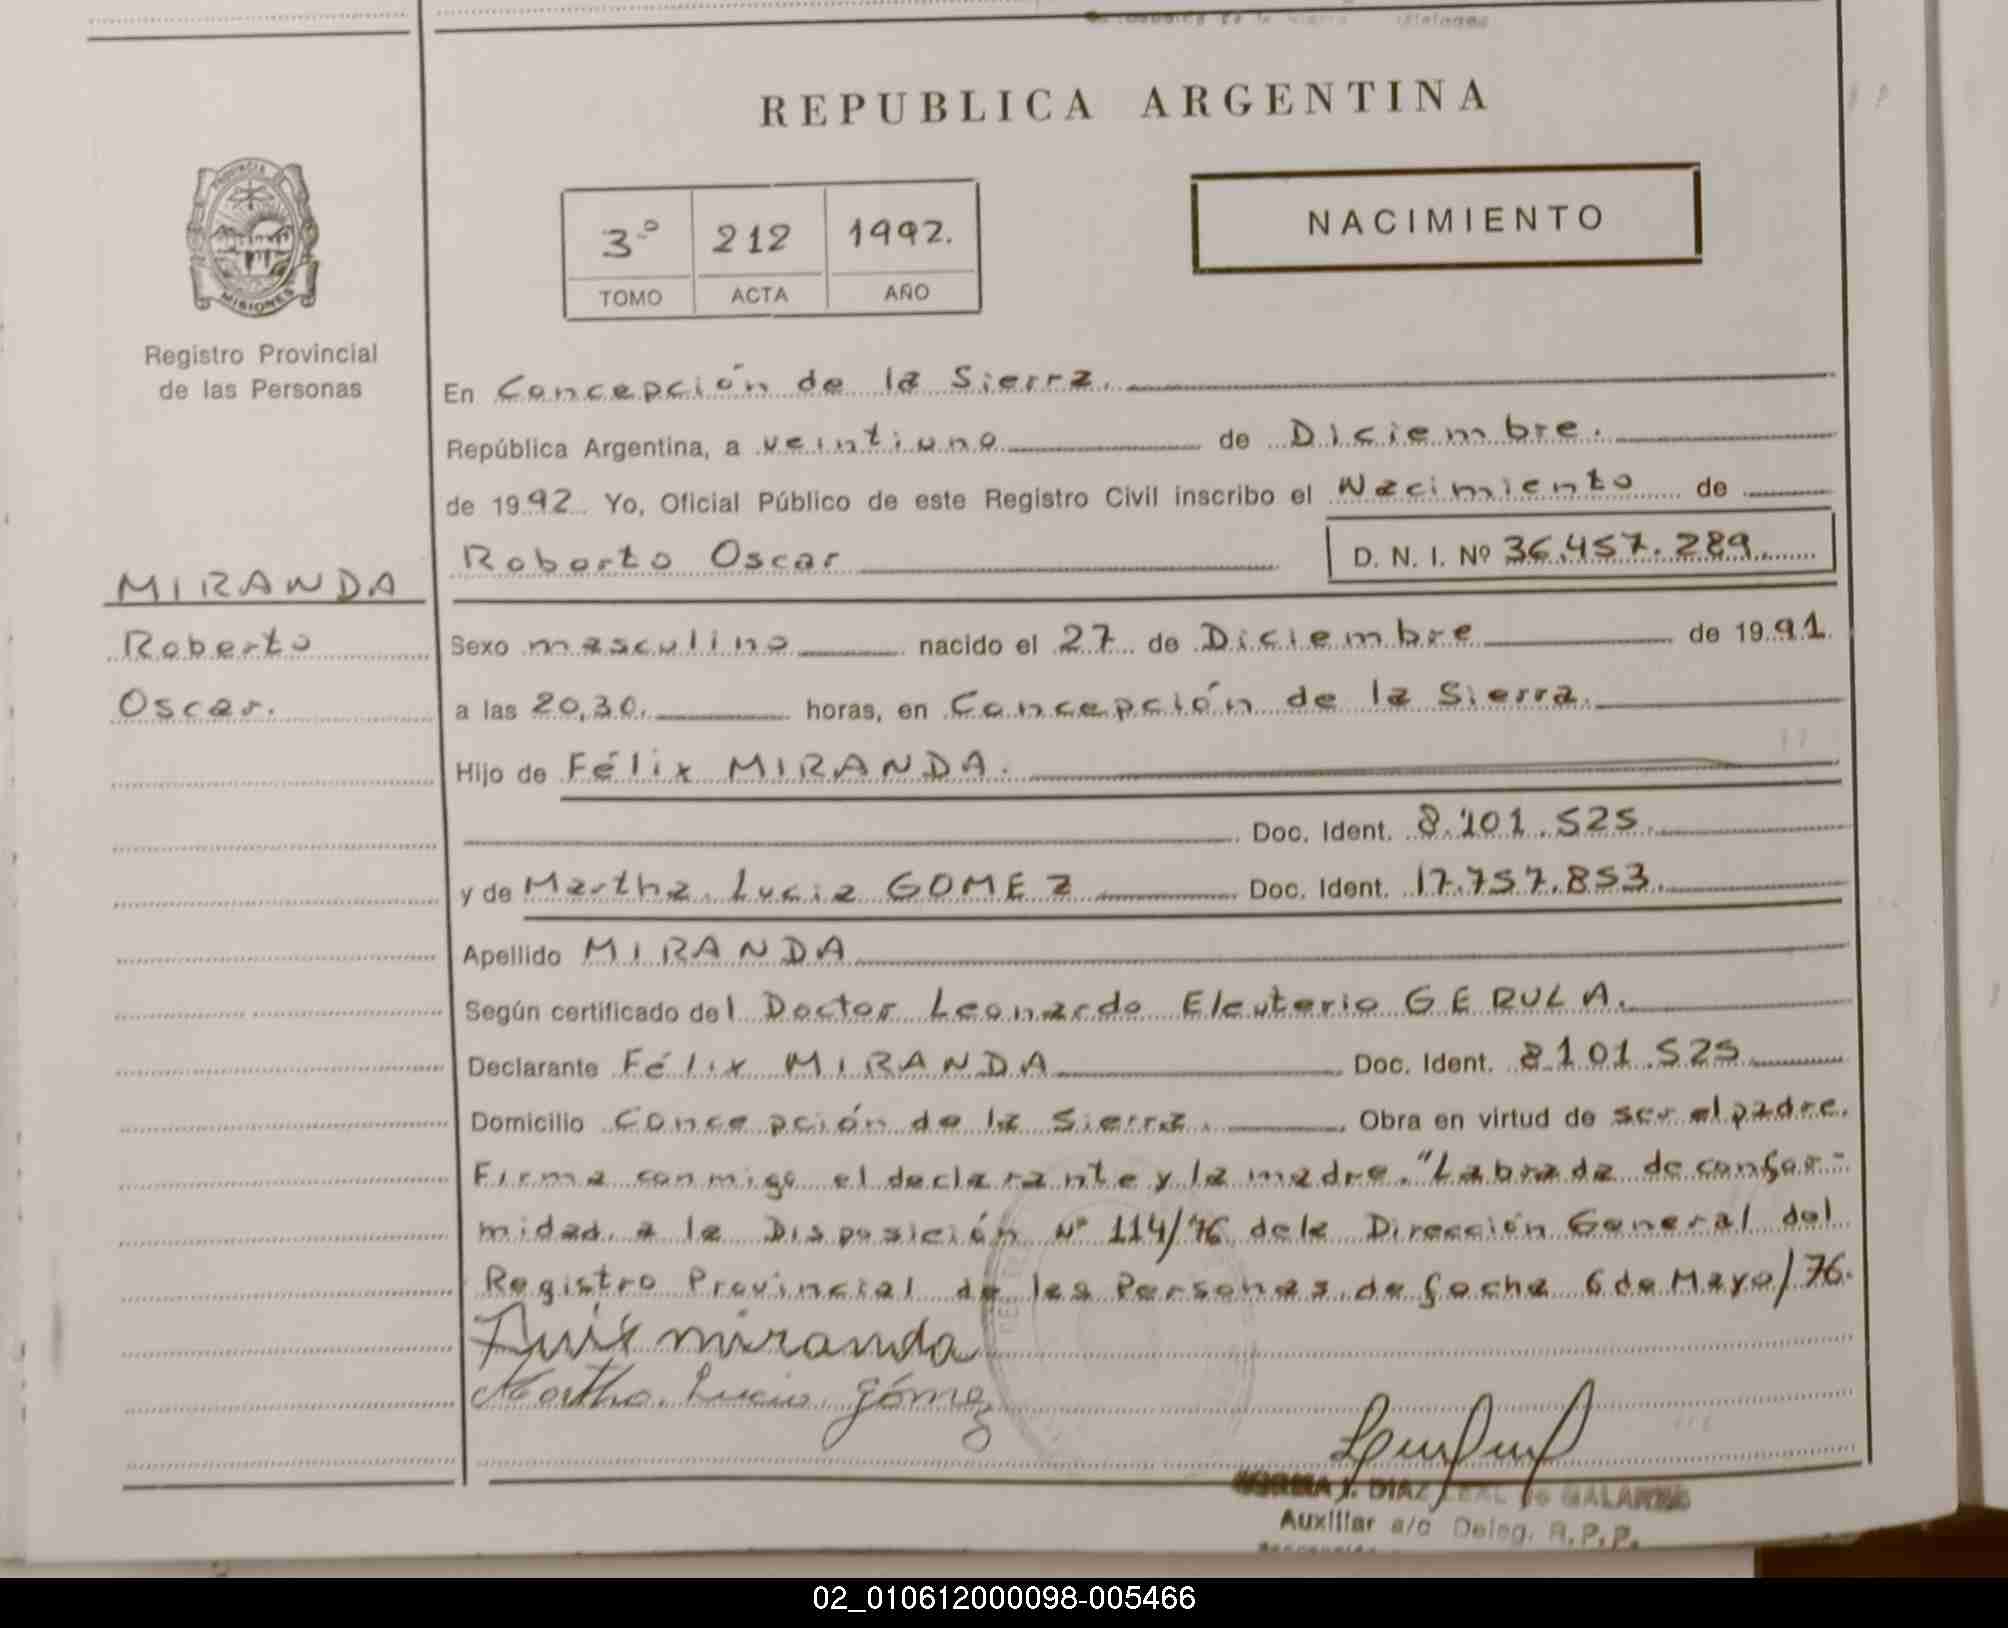 REPUBLICA ARGENTINA
PROVINCIA
MISIONES
Registro Provincial
de las Personas
3º 212 1992.
TOMO ACTA AÑO
NACIMIENTO
En Concepción de la Sierra.
República Argentina, a veintiuno de Diciembre.
de 1992 Yo, Oficial Público de este Registro Civil inscribo el Nacimiento de
Roberto Oscar D. N. I. Nº 36.457.289
MIRANDA
Roberto
Oscar.
Sexo masculino nacido el 27 de Diciembre de 1991
a las 20,30. horas, en Concepción de la Sierra.
Hijo de Félix MIRANDA.
Doc. Ident. 8.101.525
y de Martha Lucia GOMEZ Doc. Ident. 17.757.853.
Apellido MIRANDA
Según certificado del Doctor Leonardo Eleuterio GERULA.
Declarante Félix MIRANDA Doc. Ident. 8.101.525
Domicilio Concepción de la Sierra. Obra en virtud de ser el padre.
Firma conmigo el declarante y la madre. "Labrada de confor-
midad a la Disposición Nº 114/76 de la Dirección General del
Registro Provincial de las Personas de fecha 6 de Mayo/76.
miranda
Martha Lucia gómez
NORMA J. DIAZ LEAL de GALARZA
Auxiliar a/c Deleg. R.P.P.
02_010612000098-005466